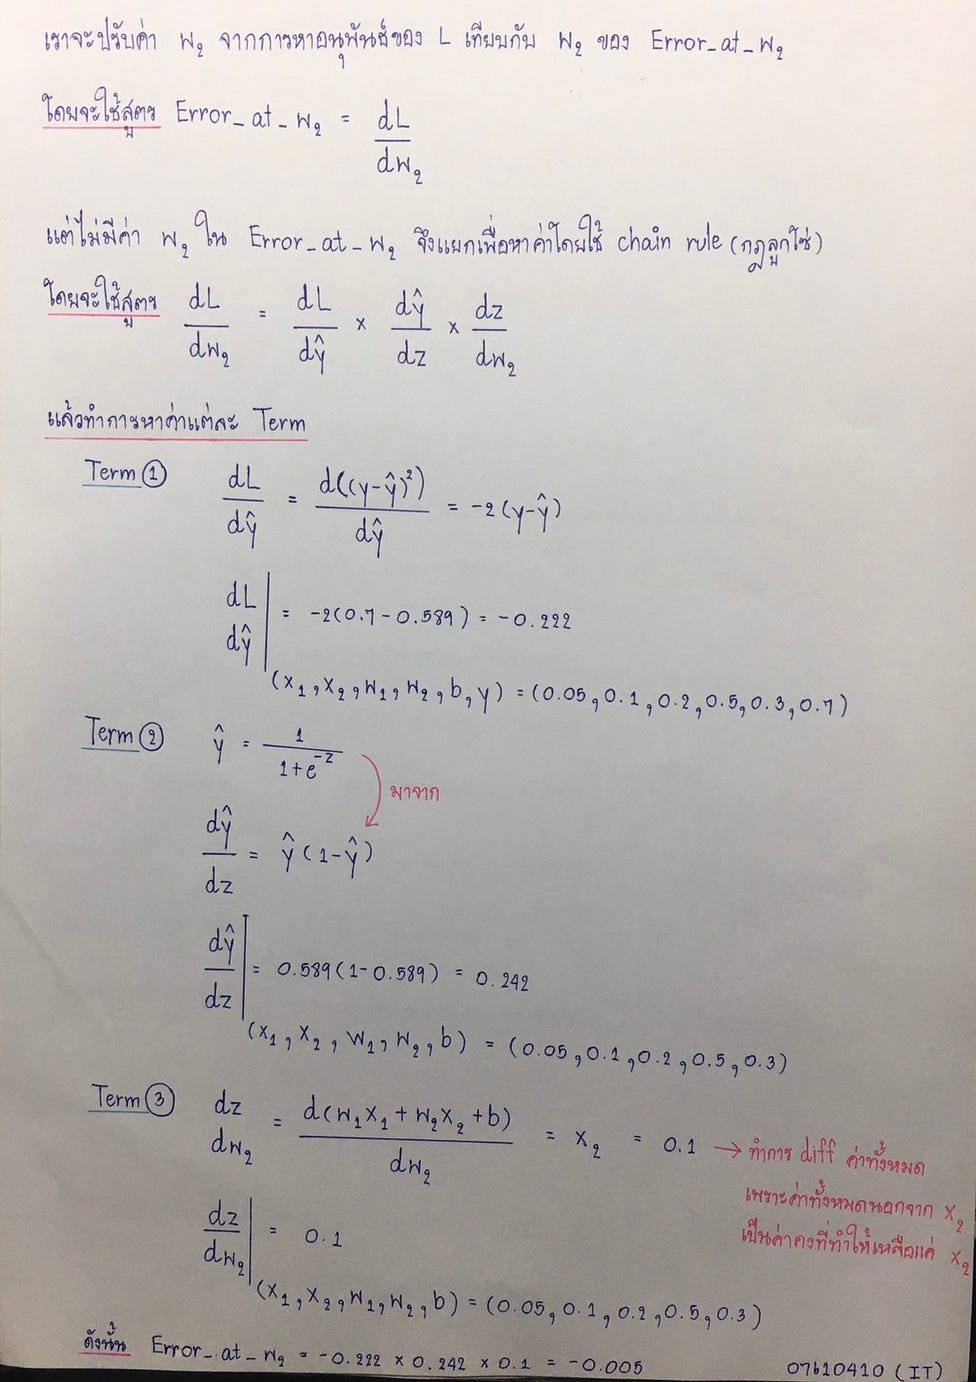 เราจะปรับค่า w₂ จากการหาอนุพันธ์ของ L เทียบกับ w₂ ของ Error_at_w₂
โดยจะใช้สูตร Error_at_w₂ = dL/dw₂
แต่ไม่มีค่า w₂ ใน Error_at_w₂ จึงแยกเพื่อหาค่าโดยใช้ chain rule (กฎลูกโซ่)
โดยจะใช้สูตร dL/dw₂ = dL/dŷ × dŷ/dz × dz/dw₂
แล้วทำการหาค่าแต่ละ Term
Term ① dL/dŷ = d((y-ŷ)²)/dŷ = -2(y-ŷ)
dL/dŷ | = -2(0.7-0.589) = -0.222
(x₁,x₂,w₁,w₂,b,y) = (0.05,0.1,0.2,0.5,0.3,0.7)
Term ② ŷ = 1/(1+e^-z)
มาจาก
dŷ/dz = ŷ(1-ŷ)
dŷ/dz | = 0.589(1-0.589) = 0.242
(x₁,x₂,w₁,w₂,b) = (0.05,0.1,0.2,0.5,0.3)
Term ③ dz/dw₂ = d(w₁x₁+w₂x₂+b)/dw₂ = x₂ = 0.1 → ทำการ diff ค่าทั้งหมด
เพราะค่าทั้งหมดนอกจาก x₂
เป็นค่าคงที่ทำให้เหลือแค่ x₂
dz/dw₂ | = 0.1
(x₁,x₂,w₁,w₂,b) = (0.05,0.1,0.2,0.5,0.3)
ดังนั้น Error_at_w₂ = -0.222 × 0.242 × 0.1 = -0.005
07610410 (IT)